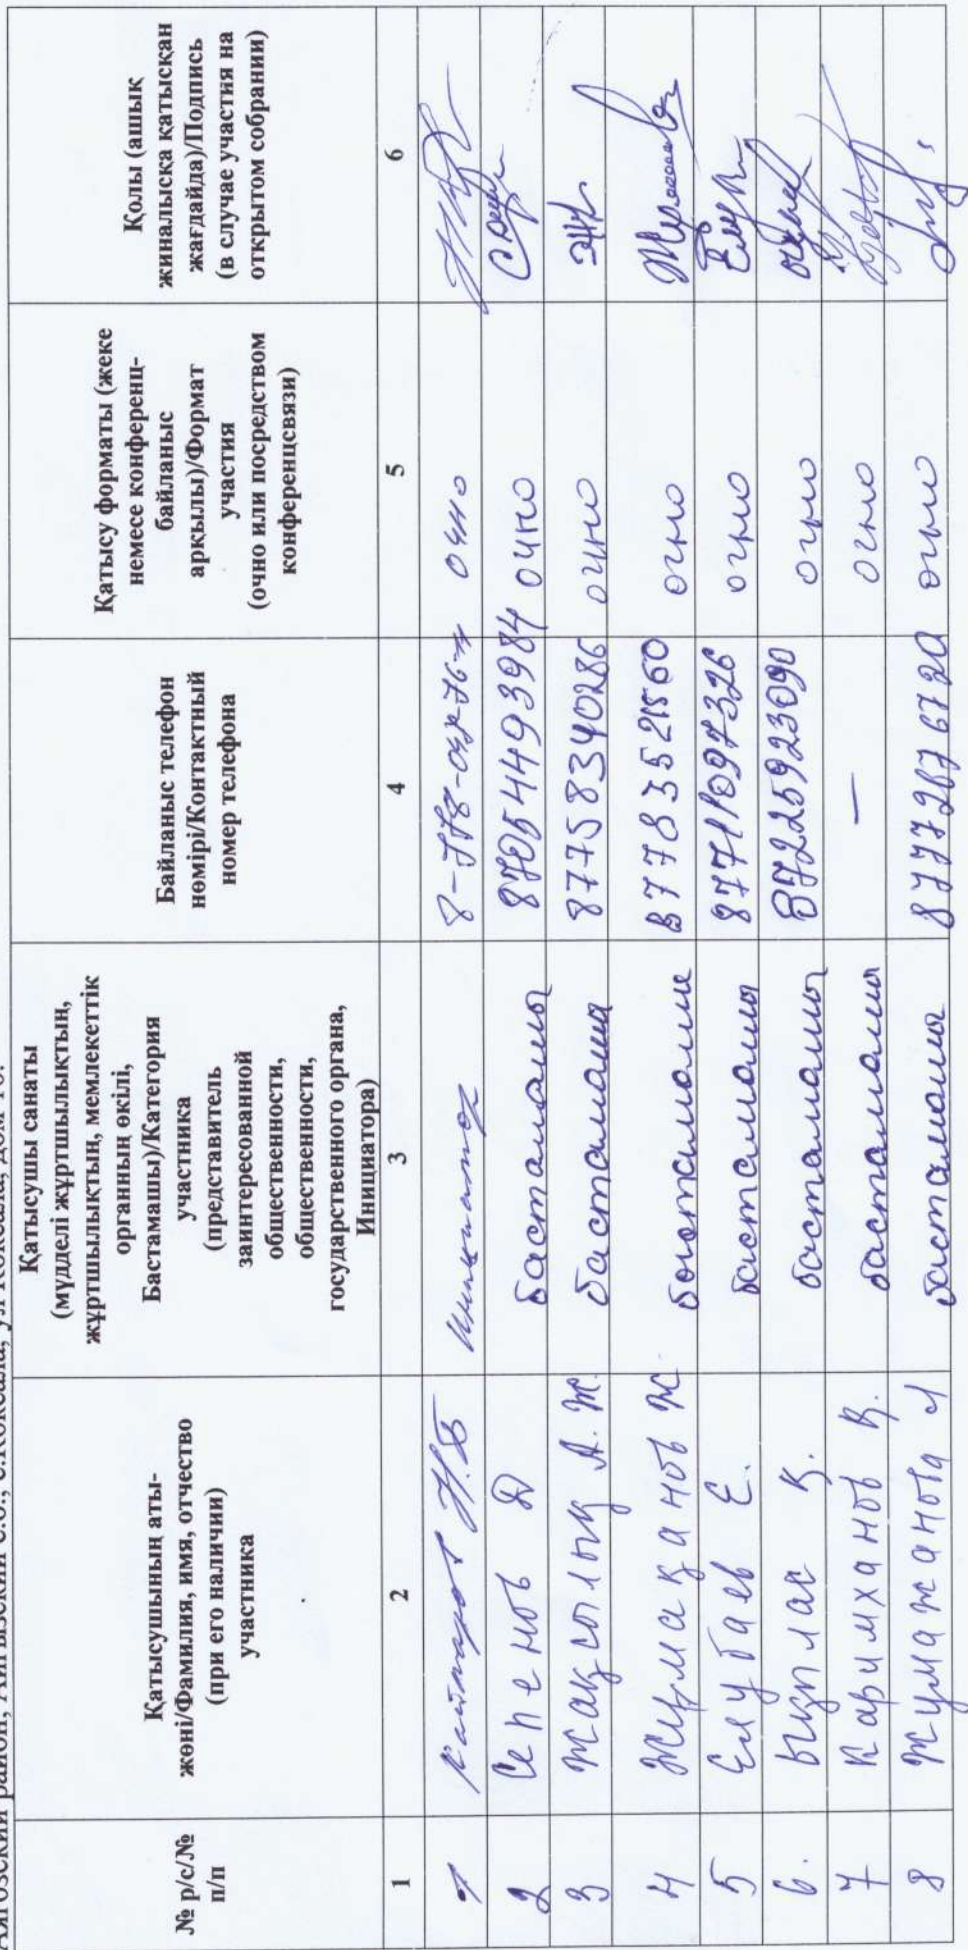 Аягозский район,
№ р/с/№
п/п
Қатысушының аты-
жөні/Фамилия, имя, отчество
(при его наличии)
участника
Қатысушы санаты
(мүдделі жұртшылықтың,
жұртшылықтың, мемлекеттік
органның өкілі,
Бастамашы)/Категория
участника
(представитель
заинтересованной
общественности,
общественности,
государственного органа,
Инициатора)
Байланыс телефон
нөмірі/Контактный
номер телефона
Қатысу форматы (жеке
немесе конференц-
байланыс
арқылы)/Формат
участия
(очно или посредством
конференцсвязи)
Қолы (ашық
жиналысқа қатысқан
жағдайда)/Подпись
(в случае участия на
открытом собрании)
1 2 3 4 5 6
1 Н.Б Инициатор очно
2 Сепенов Д бастамашы 87054493984 очно
3 Жақсылық А.Ж. бастамашы 87758340286 очно
4 Жұмақанов Ж. бастамашы очно
5 Елубаев Е. бастамашы 87711097326 очно
6. Ықлас Қ. бастамашы 87225923090 очно
7 Каримханов Қ. бастамашы — очно
8 Жумажанова бастамашы 87772876720 очно